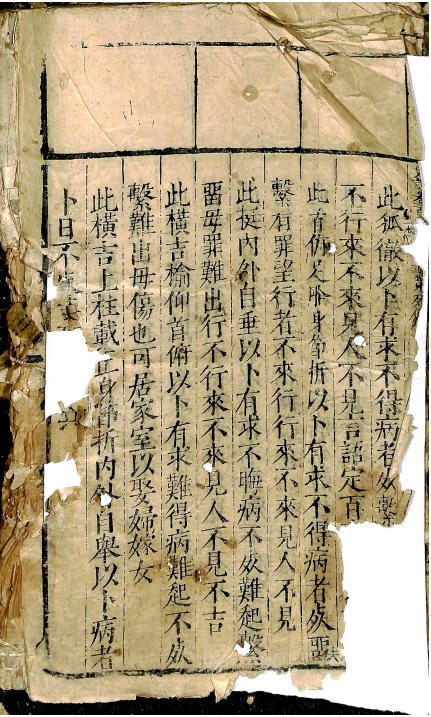 此狐徹以卜有求不得病者死繫
不行來不來見人不見言語定百
此首仰足肣身節折以卜有求不得病者死
繫有罪望行者不來行行來不來見人不見
此挺內外自垂以卜有求不晦病不死難起繫
留毋罪難出行不行來不來見人不見不吉
此橫吉榆仰首俯以卜有求難得病難起不死
繫難出毋傷也可居家室以娶婦嫁女
此橫吉上柱載 身節折內外自舉以卜病者
卜日不